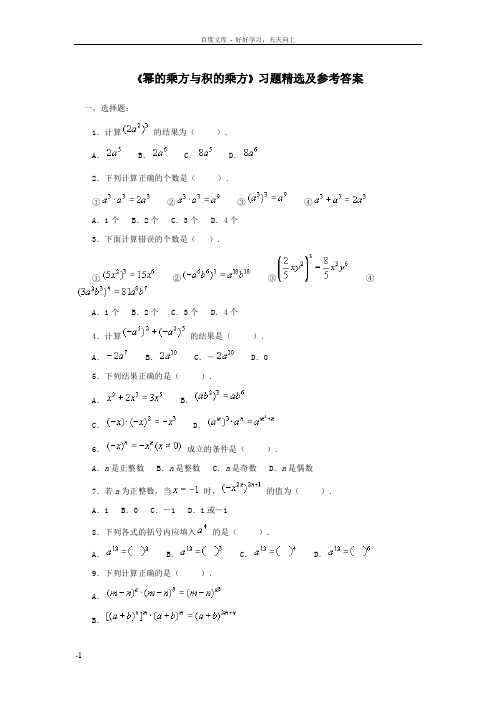 百度文库 - 好好学习，天天向上
《幂的乘方与积的乘方》习题精选及参考答案
一、选择题：
1．计算 (2a²)³ 的结果为（    ）．
A． 2a⁵  B． 2a⁶  C． 8a⁵  D． 8a⁶
2．下列计算正确的个数是（    ）．
① a³·a³=2a³ ② a³·a³=a⁹ ③ (a³)³=a⁹ ④ a³+a³=2a³
A．1个  B．2个  C．3个  D．4个
3．下面计算错误的个数是（  ）．
① (5x²)³=15x⁶ ② (-a⁶b⁶)³=a¹⁸b¹⁸ ③ (2/5 xy²)³=8/5 x³y⁶ ④
(3a²b³)⁴=81a⁸b⁷
A．1个  B．2个  C．3个  D．4个
4．计算 (-a⁵)²+(-a²)⁵ 的结果是（    ）．
A． -2a⁷  B． 2a¹⁰  C．－2a¹⁰  D．0
5．下列结果正确的是（    ）．
A． x²+2x³=3x⁵  B． (ab²)³=ab⁶
C． (-x)·(-x)²=-x³  D．
6． (-x)ⁿ=-xⁿ(x≠0) 成立的条件是（    ）．
A．n是正整数  B．n是整数  C．n是奇数  D．n是偶数
7．若n为正整数，当 x=-1 时， (-x²ⁿ)²ⁿ⁺¹ 的值为（    ）．
A．1  B．0  C．－1  D．1或－1
8．下列各式的括号内应填入 a⁴ 的是（    ）．
A． a¹²=(  )²  B． a¹²=(  )³  C． a¹²=(  )⁴  D． a¹²=(  )⁶
9．下列计算正确的是（    ）．
A． (m-n)ᵃ·(m-n)ᵇ=(m-n)ᵃᵇ
B．
-1